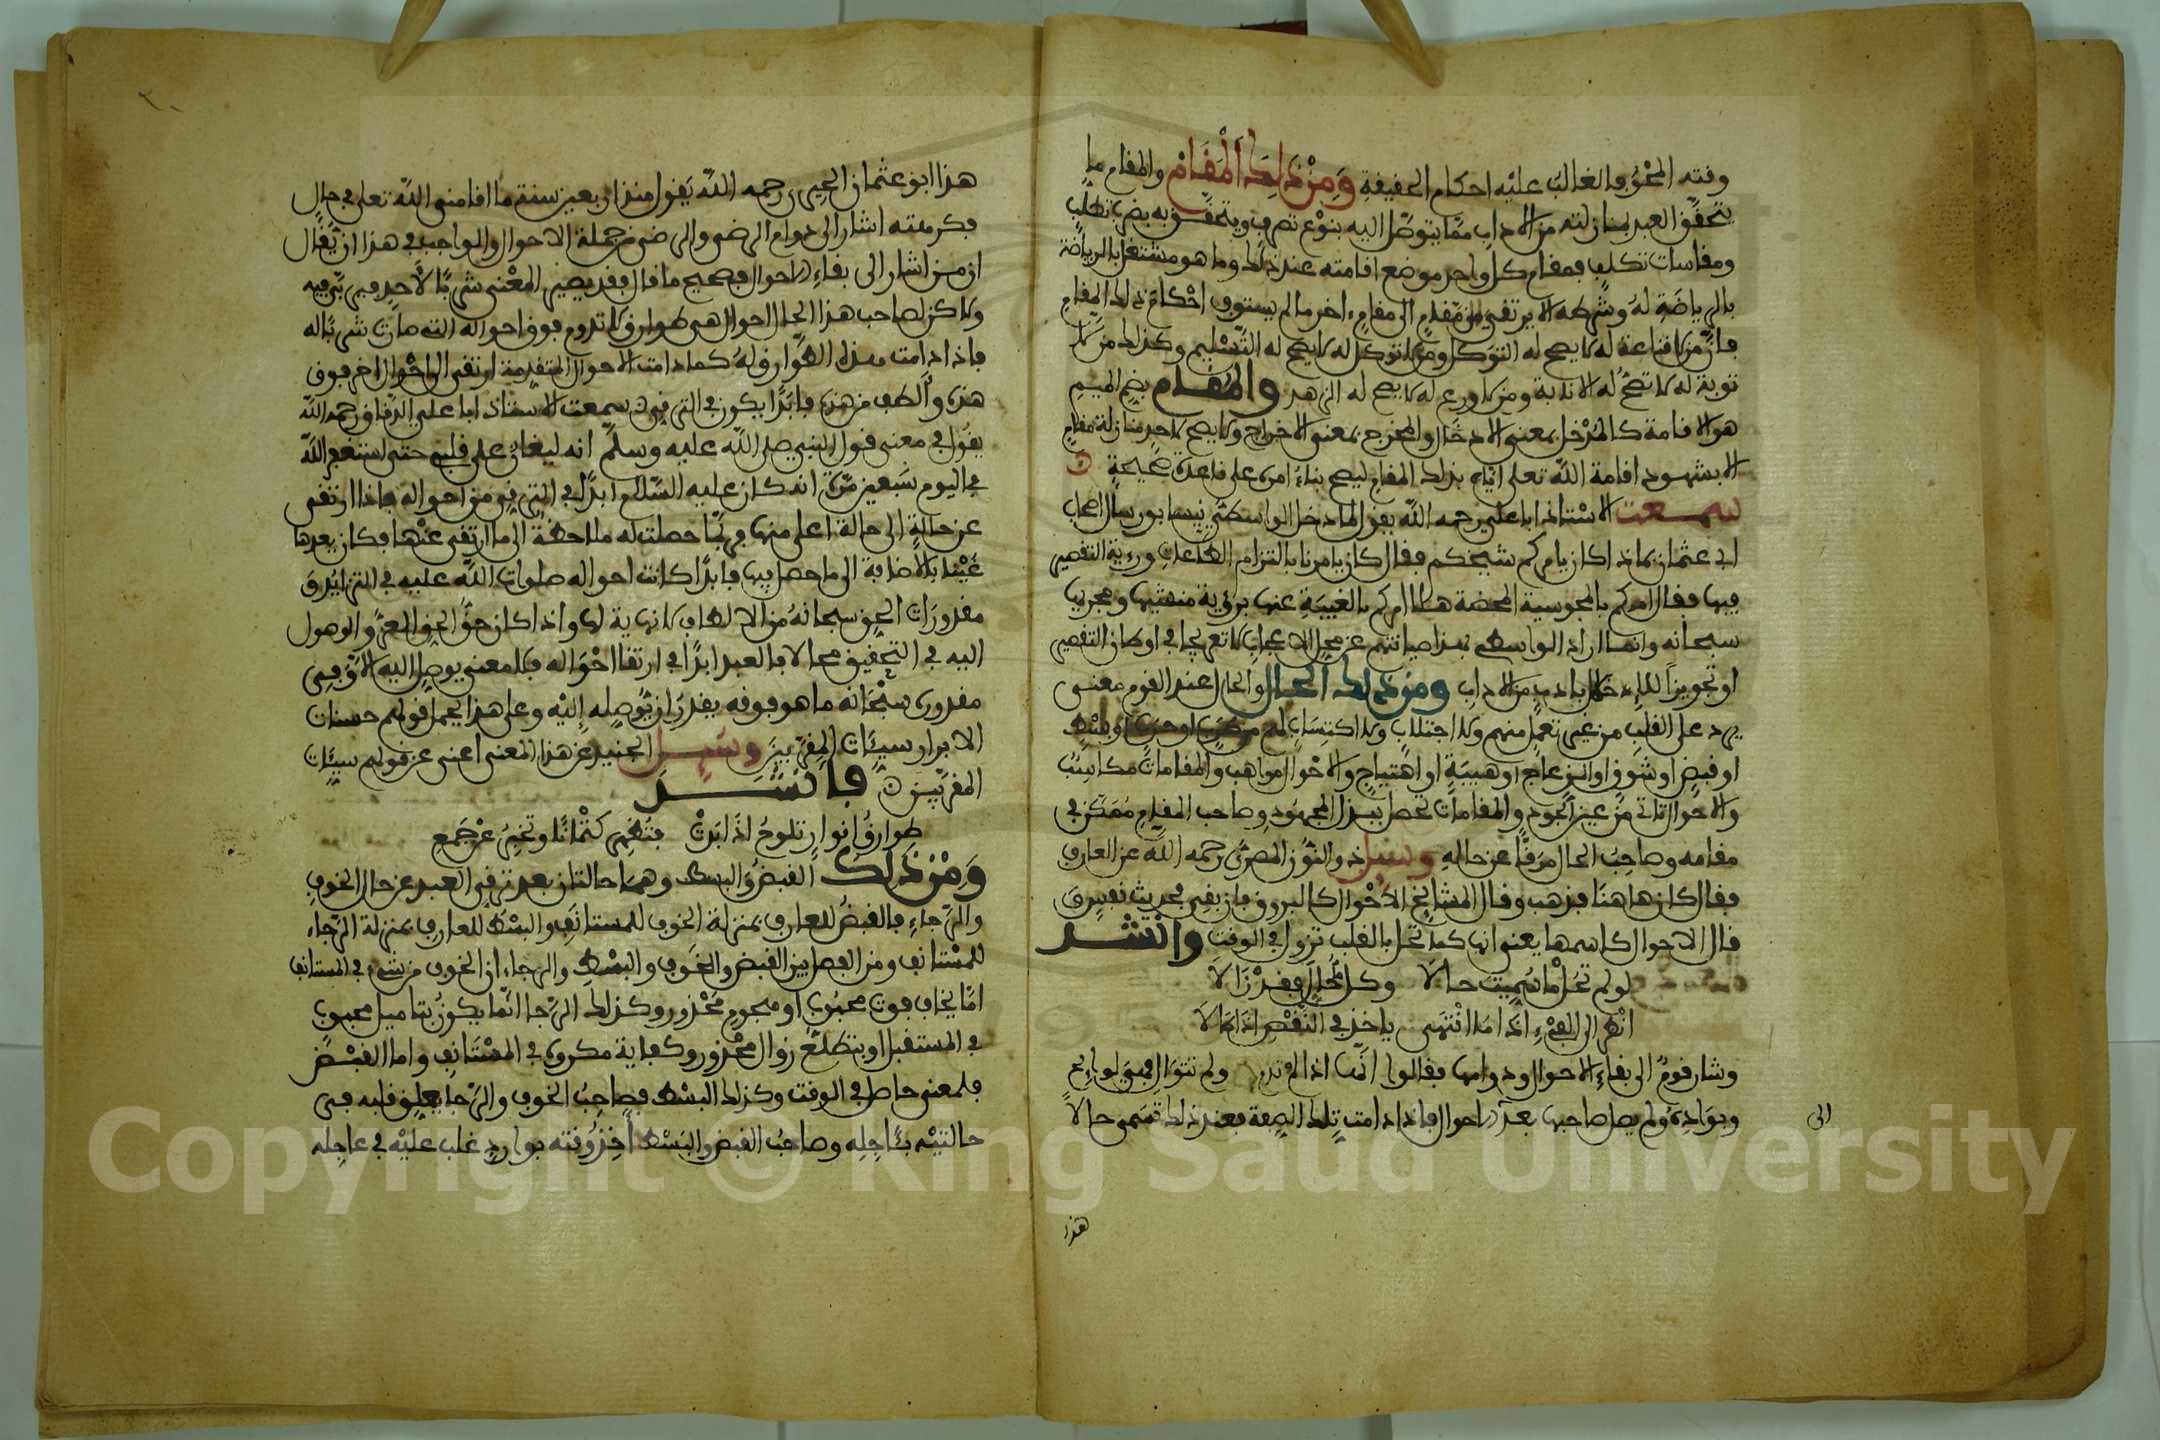 وفته المحو فالغالب عليه احكام الحفيفة ومن ذلك المفام والمفام ما
يتحفق العبد بمنازلته من الاداب مما يتوصل اليه بنوع تصرف ويتحفق به بضرب تطلب
ومفاسات تكلف فمفام كل واحد موضع افامته عند ذلك وما هو مشتغل بالرياضة
بالرياضة له وشرطه الا يرتفى من مفام الى مفام اخر ما لم يستوف احكام ذلك المفام
فان من لا فناعة له لا يصح له التوكل ومن لا توكل له لا يصح له التسليم وكذلك من لا
توبة له لا تصح له الانابة ومن لا ورع له لا يصح له الزهد والمفام بضم الميم
هو الافامة كالمدخل بمعنى الادخال والمخرج بمعنى الاخراج ولا يصح لاحد منازلة مفام
الا بشهود افامة الله تعلى اياه بذلك المفام ليصح بناء امره على فاعدة صحيحة
سمعت الاستاذ ابا علي رحمه الله يفول لما دخل الواسطي نيسابور سال اصحاب
ابي عثمان بماذا كان يامركم شيخكم ففال كان يامرنا بالتزام الطاعات ورءية التفصير
فيها ففال امركم بالمجوسية المحضة هلا امركم بالغيبة عنها برؤية منشيها ومجريها
سبحانه وانما اراد الواسطى بهذا صيانتهم عن محل الاعجاب لا تعريجا في اوطان التفصير
او تجويزا للاخلال بادب من الاداب ومن ذلك الحال والحال عند الفوم معنى
يرد على الفلب من غير تعمل منهم ولا اجتلاب ولا اكتساب لهم من طرب او حزن او بسط
او فبض او شوق او انزعاج او هيبة او اهتياج والاحوال مواهب والمفامات مكاسب
والاحوال تاتى من عين الجود والمفامات تحصل ببذل المجهود وصاحب المفام ممكن في
مفامه وصاحب الحال مرفا عن حاله وسيل ذو النون المصري رحمه الله عن العارف
ففال كان هاهنا فذهب وفال المشايخ الاحوال كالبروق فان بفى فحديث نفس
فال الاحوال كاسمها يعنو انها كما تحل بالفلب تزول في الوفت وانشد
لو لم تحل ما سميت حالا وكل ما حال ففد زالا
انظر الى الفيء اذا ما انتهى ياخذ في النفص اذا طالا
وشار فوم الى بفاء الاحوال ودوامها وفالوا انها اذا لم تدم ولم تتوال فهي لوايح
وبواده ولم يصل صاحبها بعد الاحوال فاذا دامت تلك الصفة فعند ذلك تسمى حالا
الى
هذا
هذا ابو عثمان الحيرى رحمه الله يفول منذ اربعين سنة ما افامنى الله تعلى في حال
فكرهته اشار الى دوام الرضى والرضى من جملة الاحوال والواجب في هذا ان يفال
ان من اشار الى بفاء الاحوال فصحيح ما فال ففد يصير المعنى شربا لاحد فيربى فيه
ولاكن لصاحب هذا الحال احوال هى طوارق لا تدوم فوق احواله التى صارت شربا له
فاذا دامت هذه الطوارق له كما دامت الاحوال المتفدمة ارتفى الى احوال اخر فوق
هذه والطف من هذه فابدا يكون في الترفى سمعت الاستاذ ابا علي الدفاق رحمه الله
يفول في معنى فول النبي صلى الله عليه وسلم انه ليغان على فلبى حتى استغفر الله
في اليوم سبعين مرة انه كان عليه السلام ابدا في الترفى من احواله فاذا ارتفى
عن حالة الى حالة اعلى منها فربما حصلت له ملاحظة الى ما ارتفى عنها فكان يعدها
غينا بالاضافة الى ما حصل فيها فابدا كانت احواله صلوات الله عليه في التزايد
مفدورات الحق سبحانه من الالطاف لا نهاية لها واذا كان حق الحق العز والوصول
اليه في التحفيق محالا فالعبد ابدا في ارتفا احواله فلا معنى يوصل اليه الا وفي
مفدوره سبحانه ما هو فوفه يفدر ان يوصله اليه وعلى هذا يحمل فولهم حسنات
الابرار سيئات المفربين وسيل الجنيد عن هذا المعنى اعنى عن فولهم سيئات
المفربين فانشد
طوارق انوار تلوح اذا بدت فتظهر كتمانا وتخبر عن جمع
ومن ذلك الفبض والبسط وهما حالتان بعد ترفى العبد عن حال الخوف
والرجاء فالفبض للعارف بمنزلة الخوف للمستانف والبسط للعارف بمنزلة الرجاء
للمستانف ومن الفصل بين الفبض والخوف والبسط والرجاء ان الخوف من شيء في المستانف
اما يخاف فوت محبوب او هجوم محذور وكذلك الرجا انما يكون بتاميل محبوب
في المستفبل او بتطلع زوال محذور وكفاية مكروه في المستانف واما الفبض
فلمعنى حاصل في الوفت وكذلك البسط فصاحب الخوف والرجا يعلق فلبه فى
حالتيه بئاجله وصاحب الفبض والبسط اخذ وفته بوارد غلب عليه في عاجله